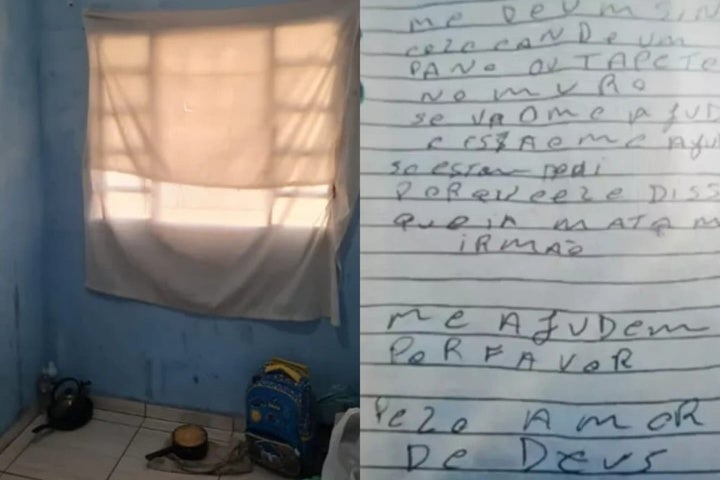 ME DEU M SIN
COLOCANDE UM
PANO OU TAPETE
NO MURO
SE VAO ME AJUD
ME AJU
PORQUE ELE DISS
QUE IA MATA M
IRMÃO
ME AJUDEM
POR FAVOR
PELO AMOR
DE DEUS